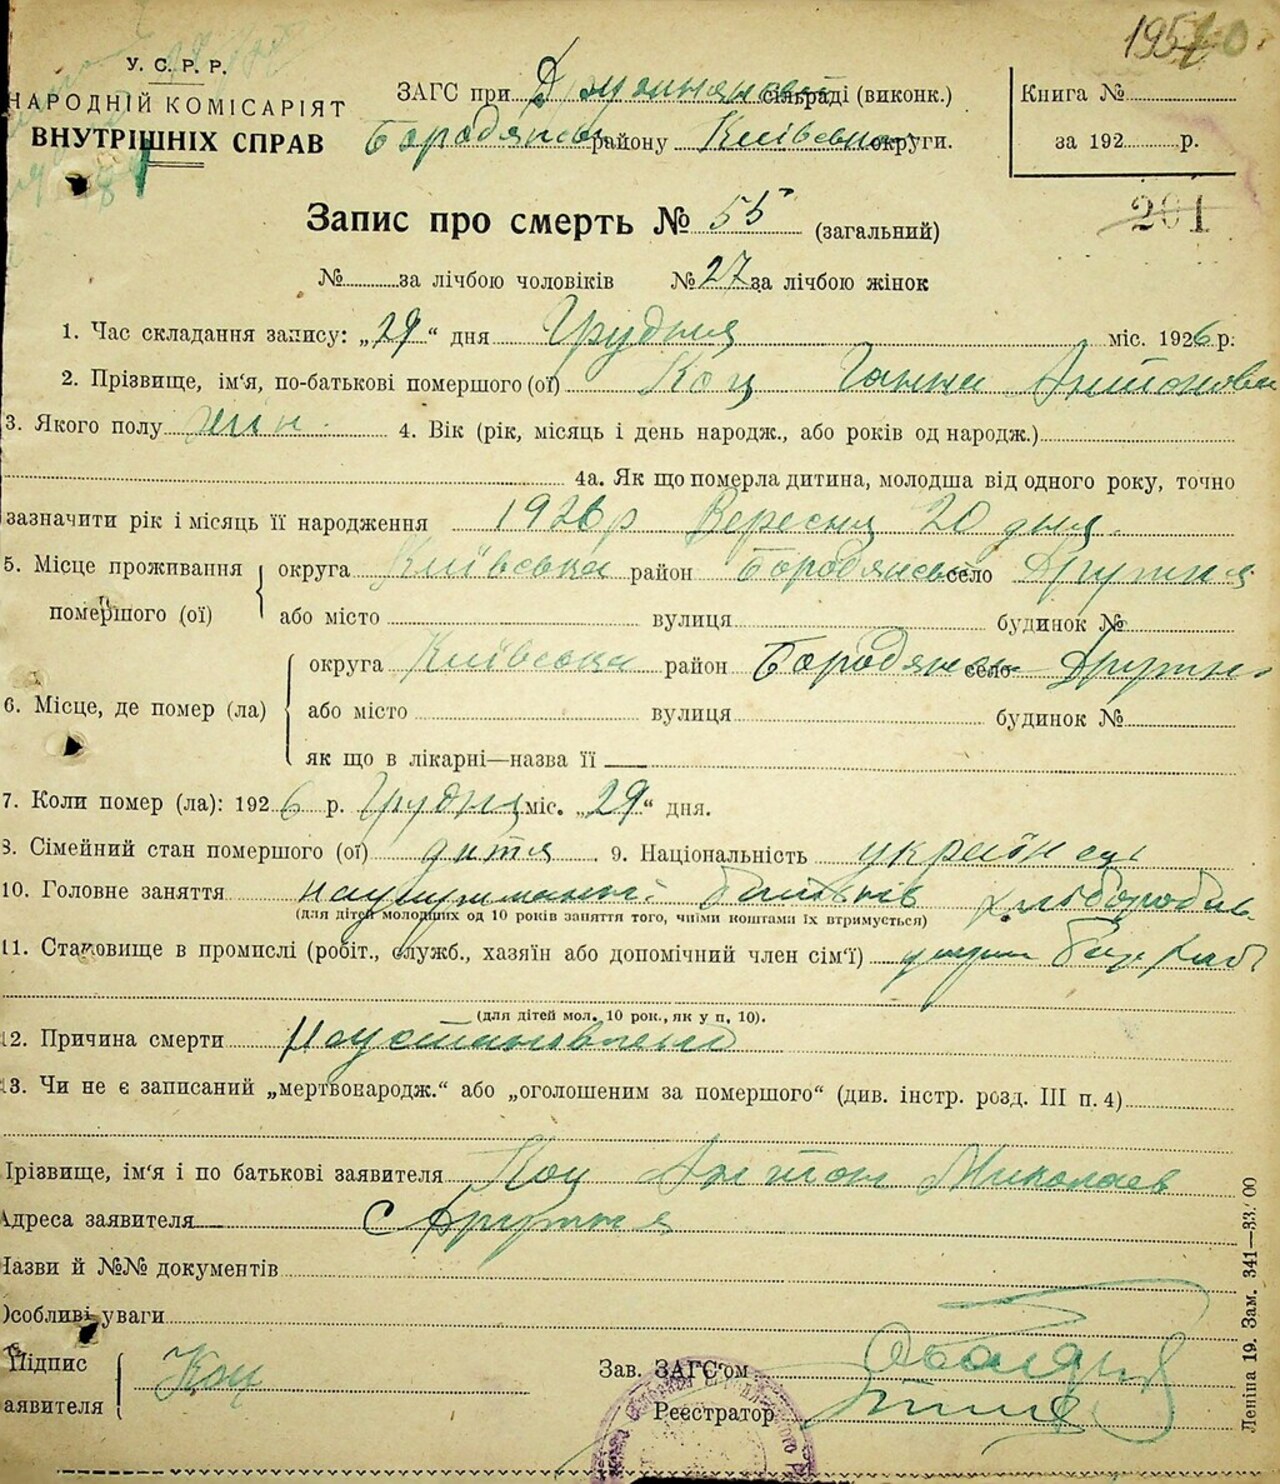 У. С. Р. Р.
НАРОДНІЙ КОМІСАРІЯТ
ВНУТРІШНІХ СПРАВ
ЗАГС при Дружнянській сільраді (виконк.)
Бородянськ району Київської округи.
Книга №
за 192 р.
201
Запис про смерть № 55 (загальний)
№ за лічбою чоловіків № 27 за лічбою жінок
1. Час складання запису: „29“ дня Грудня міс. 1926 р.
2. Прізвище, ім'я, по-батькові помершого (ої) Коц Ганна Антоновн
3. Якого полу жін. 4. Вік (рік, місяць і день народж., або років од народж.)
4а. Як що померла дитина, молодша від одного року, точно
зазначити рік і місяць її народження 1926 р Вересня 20 дня.
5. Місце проживання помершого (ої)
округа Київська район Бородянськ село Дружня
або місто вулиця будинок №
6. Місце, де помер (ла)
округа Київська район Бородянськ село Дружня
або місто вулиця будинок №
як що в лікарні—назва її
7. Коли помер (ла): 1926 р. Грудня міс. „29“ дня.
8. Сімейний стан помершого (ої) дитя. 9. Національність украінець
10. Головне заняття на утриманні батьків хлібороб
(для дітей молодших од 10 років заняття того, чиїми коштами їх втримується)
11. Становище в промислі (робіт., служб., хазяїн або допомічний член сім'ї)
(для дітей мол. 10 рок., як у п. 10).
12. Причина смерти Неустановлено
13. Чи не є записаний „мертвонародж.“ або „оголошеним за помершого“ (див. інстр. розд. III п. 4)
Прізвище, ім'я і по батькові заявителя Коц Антон Миколаев
Адреса заявителя с Дружня
Назви й №№ документів
Особливі уваги
Підпис заявителя Коц
Зав. ЗАГС'ом
Реєстратор
Леніна 19. Зам. 341—33.00